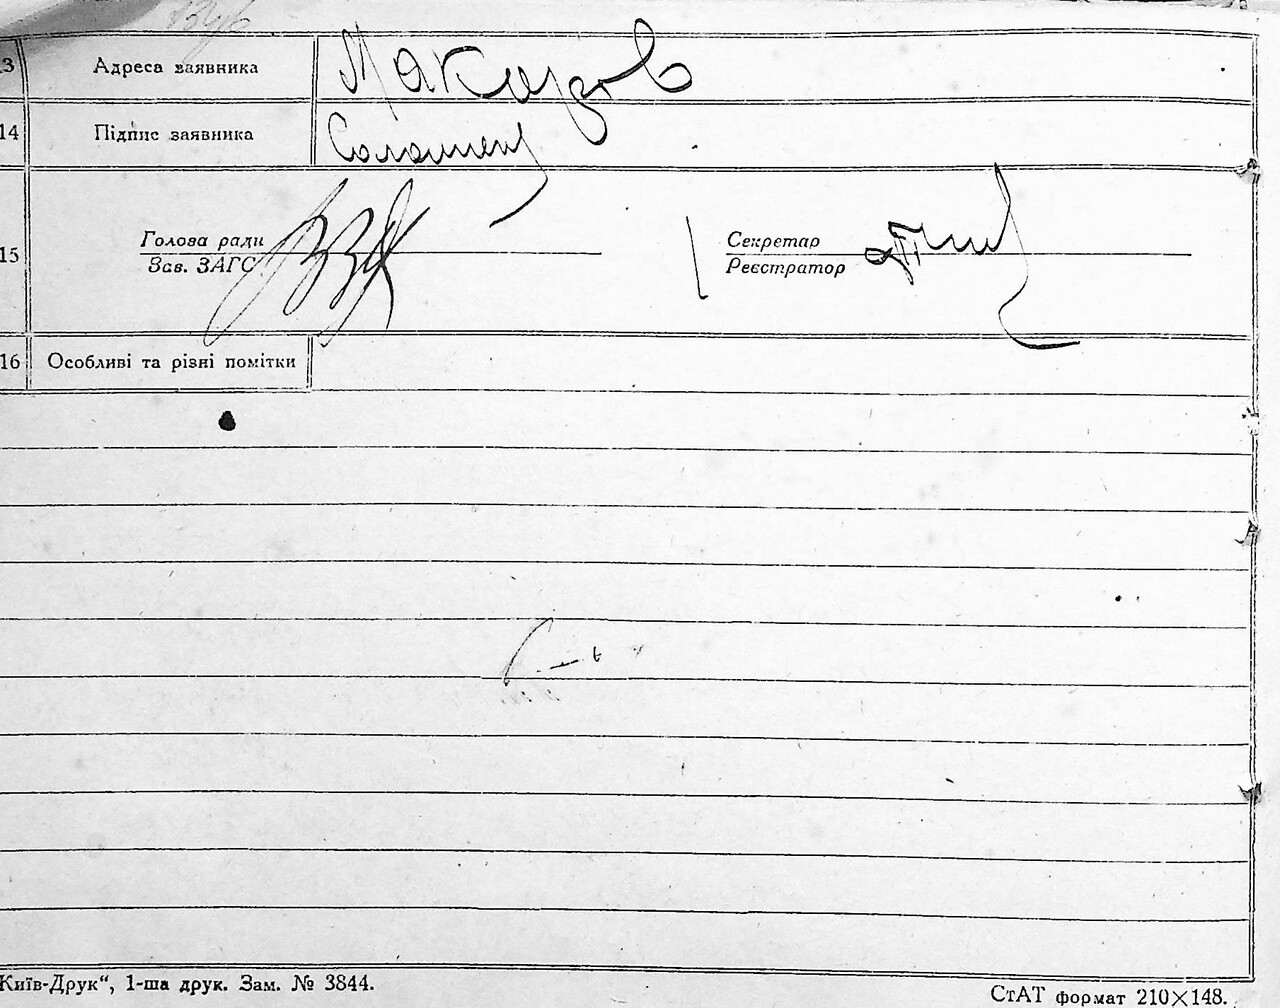 13 Адреса заявника Макарів
14 Підпис заявника
15 Голова ради Секретар
Зав. ЗАГС Реєстратор
16 Особливі та різні помітки
Київ-Друк“, 1-ша друк. Зам. № 3844.
СтАТ формат 210×148.